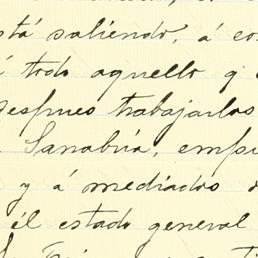 stá saliendo, á co
todo aquello q
despues trabajarlos
Sanabria, emp
y á mediados d
él estado general